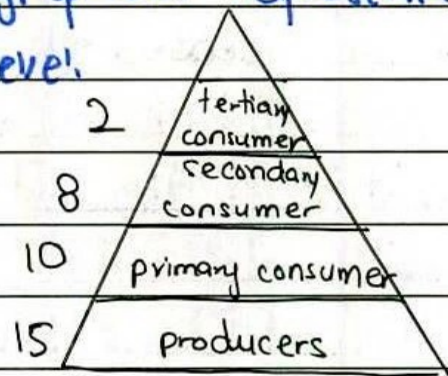 level.
2 tertiary
consumer
8 secondary
consumer
10 primary consumer
15 producers